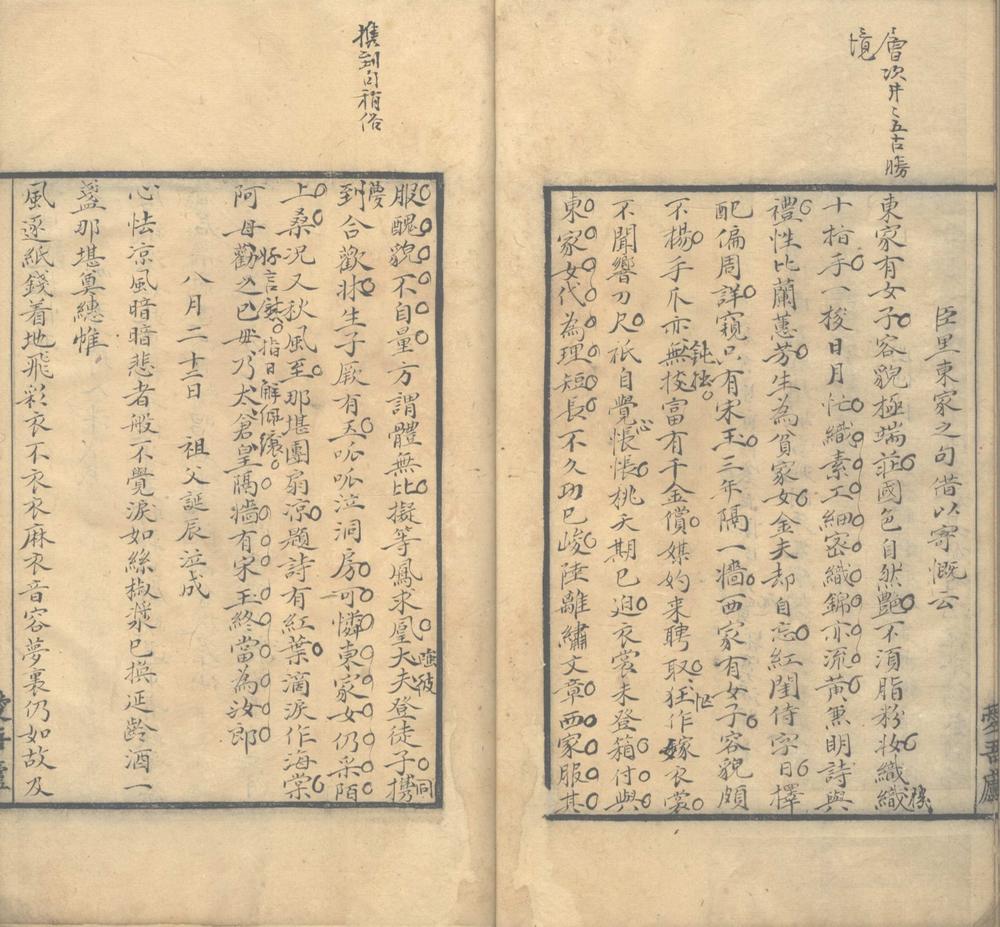 層次井々五古勝
境
臣里東家之句借以寄慨云
東家有女子容貌極端莊國色自然艷不須脂粉妝織織
機
十指手一梭日月忙織素工細密織錦亦流黃兼明詩與
禮性比蘭蕙芳生為貧家女金夫却自忘紅閨侍字日擇
配偏周詳窺只有宋玉三年隔一牆西家有女子容貌頗
不揚手爪亦無揬富有千金償媒妁來聘取狂作嫁衣裳
忙
不聞響刀尺祇自覺悵悵桃夭期已迫衣裳未登箱付與
心
東家女代為理短長不久功已峻陸離繡文章西家服其
愛吾廬
携到句稍俗
服醜貌不自量方謂體無比擬等鳳求凰大夫登徒子攜
嗤彼
同
夢
到合歡牀生子厥有五呱呱泣洞房可憐東家女仍采陌
上桑況又秋風至那堪團扇涼題詩有紅葉滴淚作海棠
阿母勸之巳毋乃太倉皇隔牆有宋玉終當為汝郎
好言慰指日解佩纕
八月二十三日 祖父誕辰泣成
心怯涼風暗暗悲者般不覺淚如絲椒漿已換延齡酒一
盞那堪奠繐帷
風逐紙錢着地飛彩衣不衣衣麻衣音容夢裏仍如故及